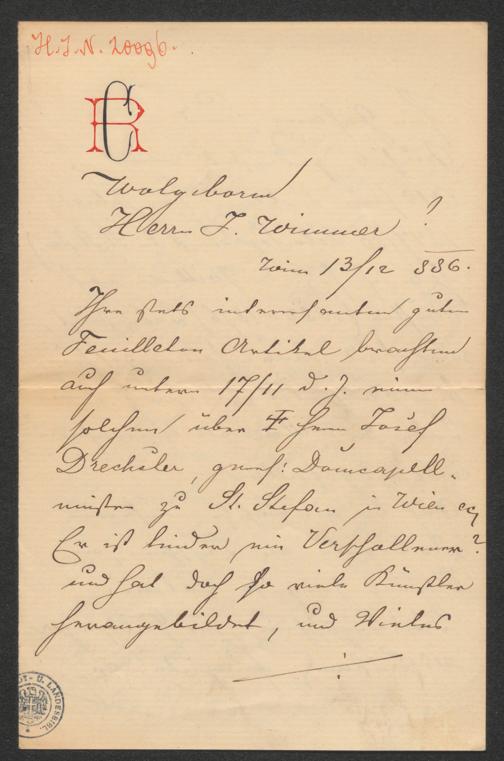 H.I.N. 20096.
RC
Wolgeborn
Herrn J. Wimmer!
Wien 13/12 886.
Ihre stets interessanten guten
Feuilleton Artikel brachten
auch unterm 17/11 d. J. einen
solchen über Herrn Josef
Drechsler, gewes: Domcapell-
meister zu St. Stefan in Wien
Er ist leider ein Verschollener?
und hat doch so viele Künstler
herangebildet, und Vieles
U. LANDESBIBL.